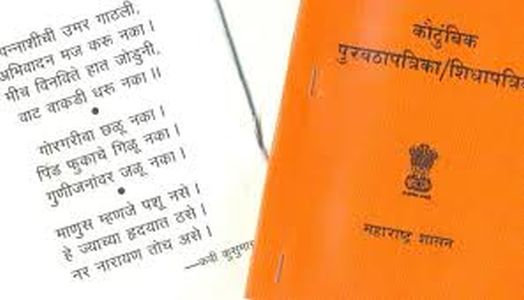 पन्नाशीची उमर गाठली,
अभिवादन मज करू नका।
मीच विनविते हात जोडुनी,
वाट वाकडी धरू नका॥
गोरगरीबा छळू नका।
पिंड फुकाचे गिळू नका।
गुणीजनांवर जळू नका।
माणुस म्हणजे पशू नसे।
हे ज्याच्या हृदयात ठसे।
नर नारायण तोच असे।
—कवी
कौटुंबिक
पुरवठापत्रिका/शिधापत्रि
महाराष्ट्र शासन